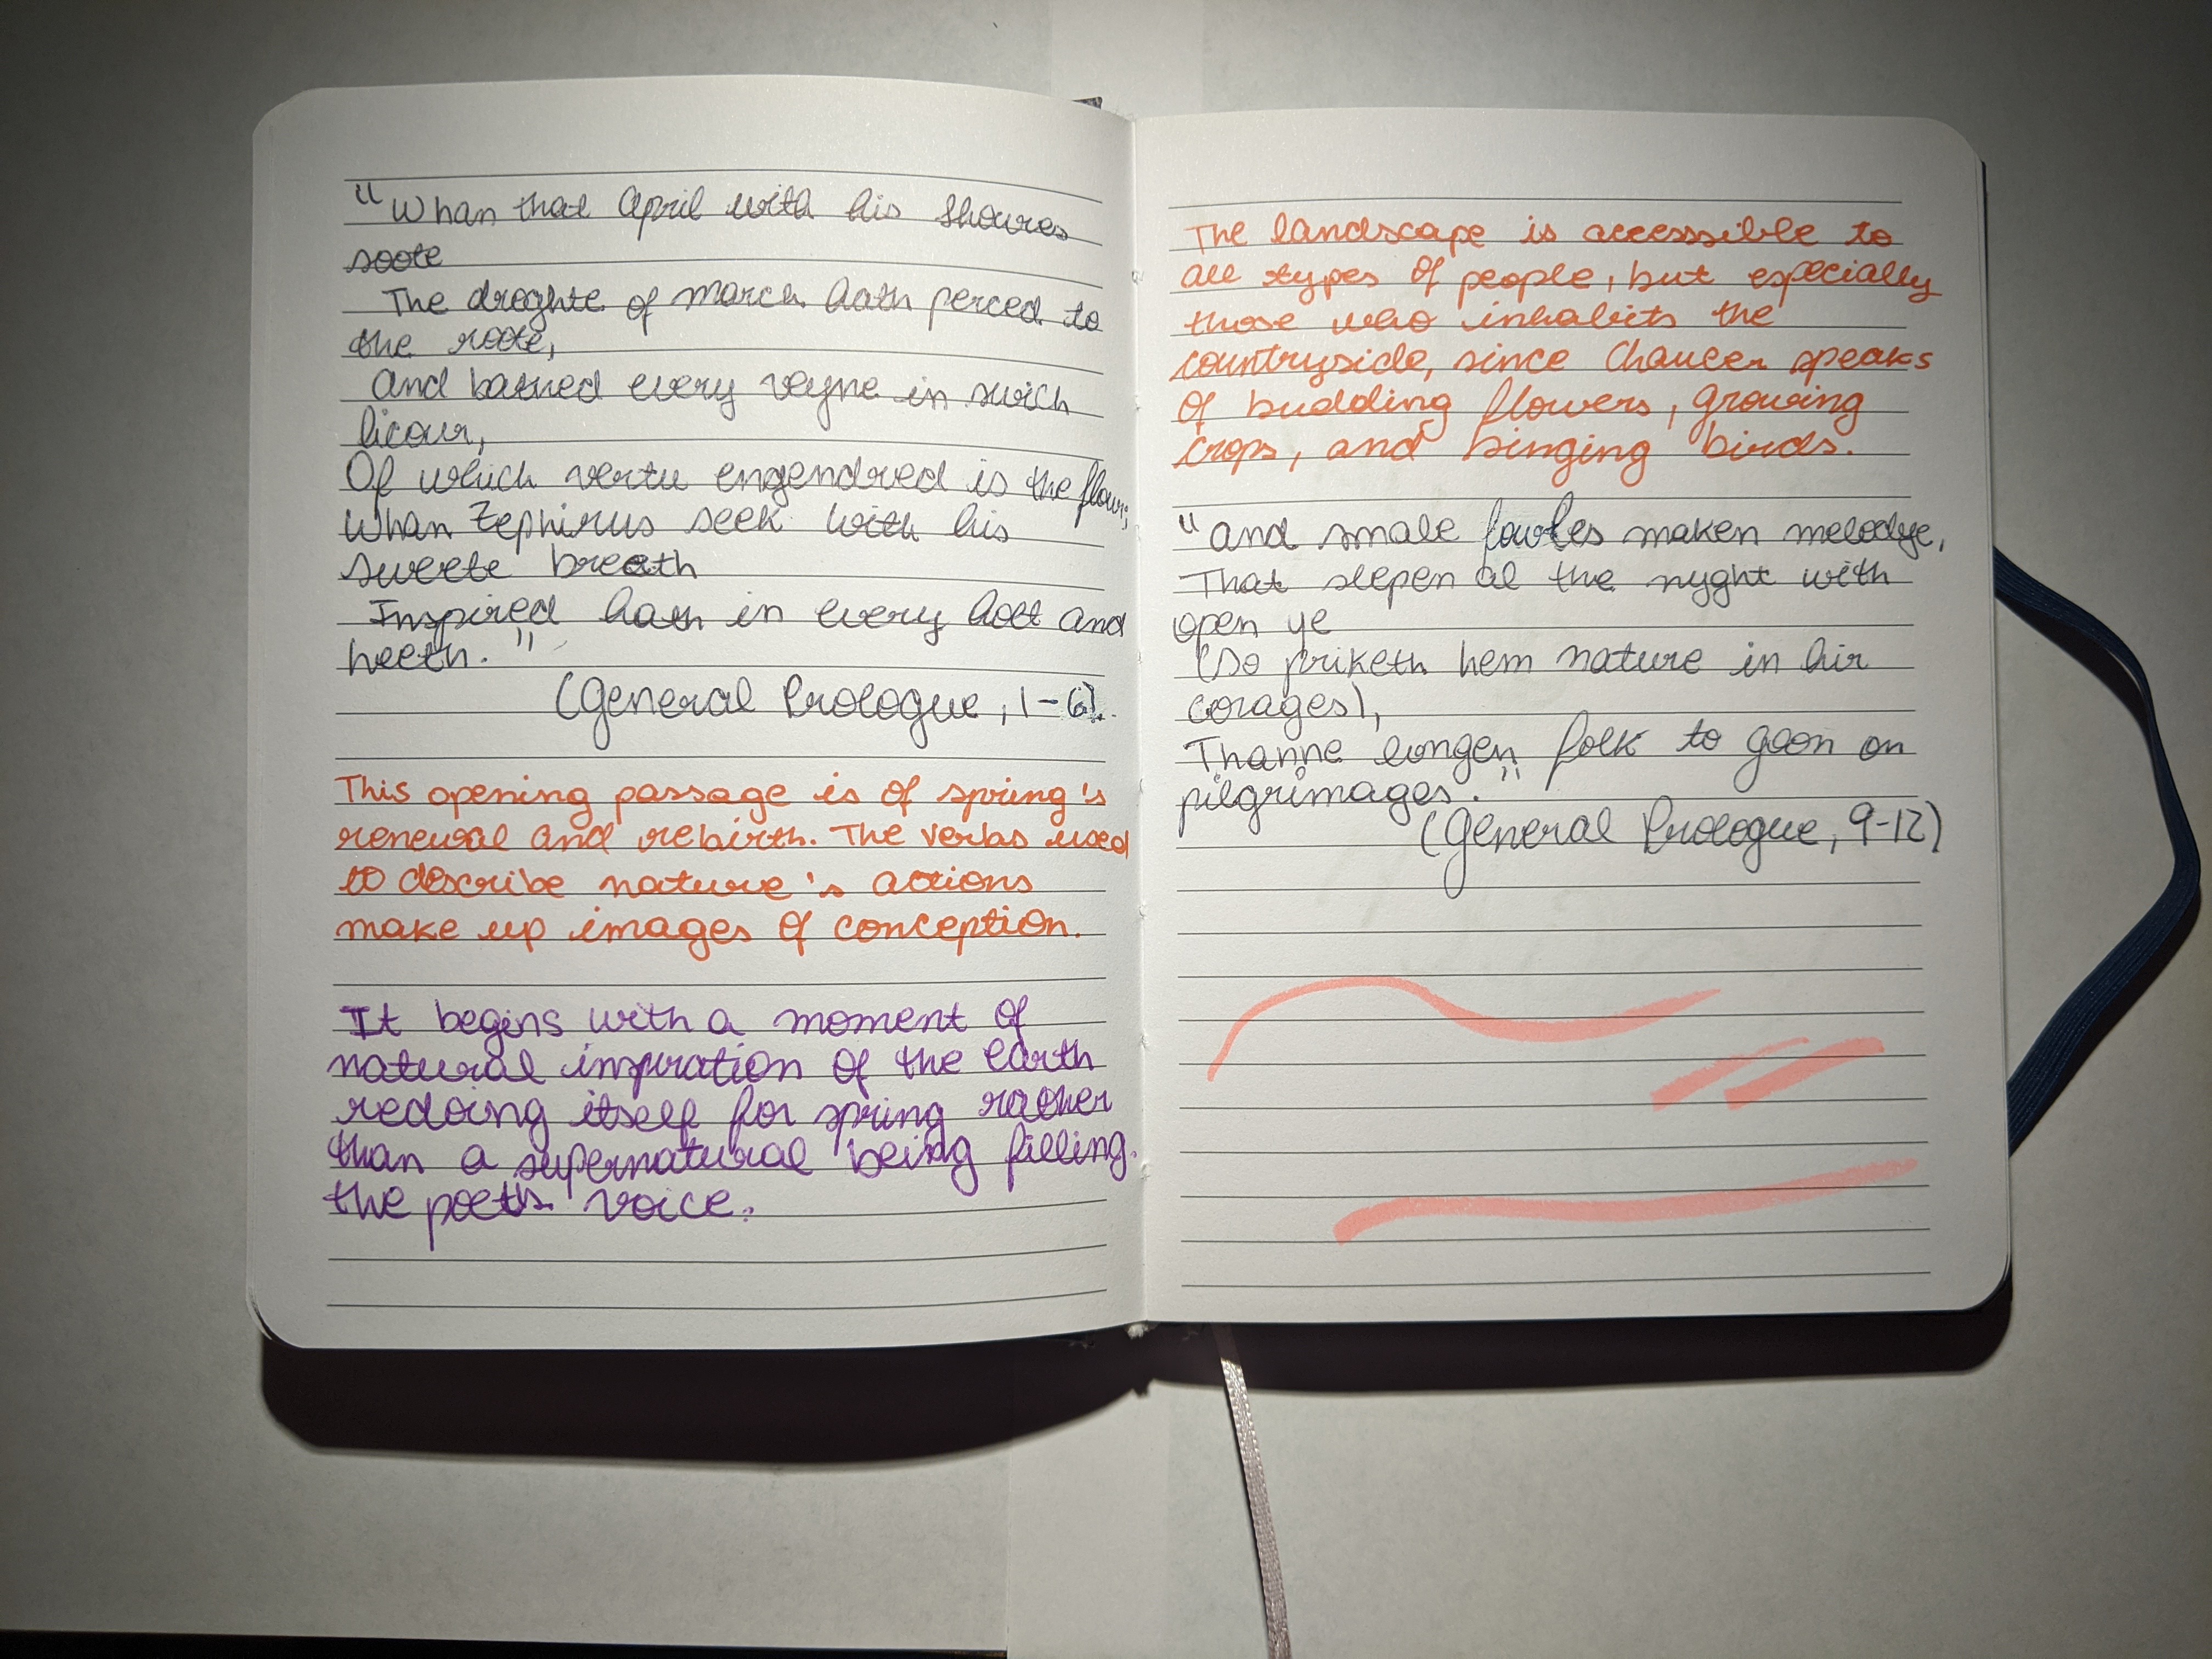 "Whan that April with his showres
soote
The droghte of march hath perced to
the roote,
and bathed every veyne in swich
licour,
Of which vertu engendred is the flour;
Whan Zephirus seek with his
sweete breeth
Inspired hath in every holt and
heeth."
(General Prologue, 1-6).
This opening passage is of spring's
renewal and rebirth. The verbs used
to describe nature's actions
make up images of conception.
It begins with a moment of
natural inspiration of the earth
redoing itself for spring rather
than a supernatural being filling
the poet's voice.
The landscape is accesssible to
all types of people, but especially
those who inhabits the
countryside, since Chaucer speaks
of budding flowers, growing
crops, and singing birds.
"and smale fowles maken melodye,
That slepen al the nyght with
open ye
(so priketh hem nature in hir
corages),
Thanne longen folk to goon on
pilgrimages."
(General Prologue, 9-12)